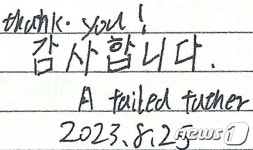 thank. you!
감사합니다.
A failed father
2023.8.25
뉴스1